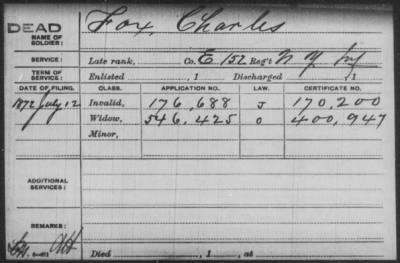 DEAD
NAME OF
SOLDIER:
Fox, Charles
SERVICE:
Late rank, Co. E 152 Reg't N Y Inf
TERM OF
SERVICE:
Enlisted , 1 Discharged , 1
DATE OF FILING. CLASS. APPLICATION NO. LAW. CERTIFICATE NO.
1872 July 12 Invalid, 176,688 J 170,200
Widow, 546,425 O 400,947
Minor,
ADDITIONAL
SERVICES:
REMARKS:
Died , 1 , at